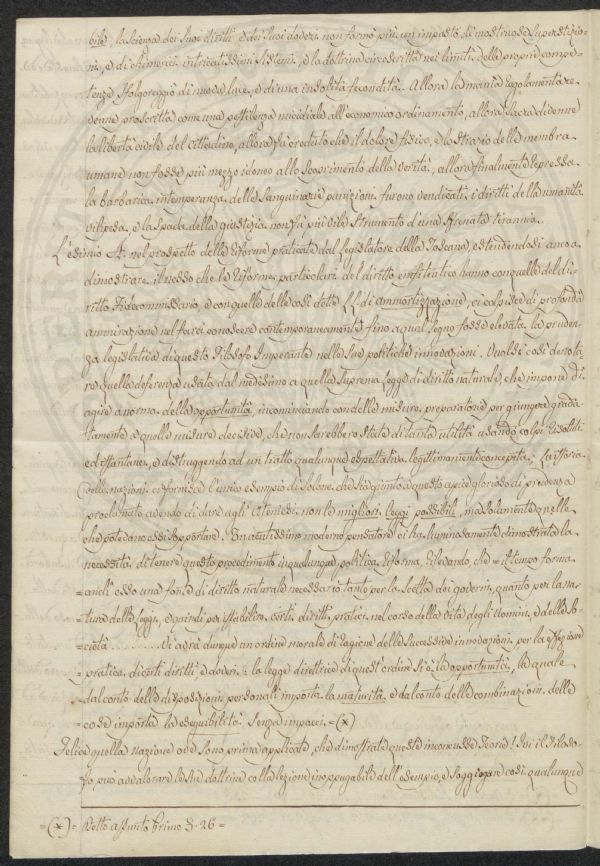 bile, la scienza dei suoi diritti, e dei suoi doveri non formò più un impasto di mostruose superstizio-
ni, e di chimerici intricatissimi sistemi, e la dottrina circoscritta nei limiti della propria compe-
tenza sfolgoreggiò di nuova luce, e di una insolita fecondità. Allora la manìa regolamentare
venne proscritta come una pestilenza micidiale all'economico ordinamento, allora sacra divenne
la libertà civile del cittadino, allora fù creduto che il dolore fisico, e lo strazio delle membra
umane non fosse più mezzo idoneo allo scoprimento della verità, allora finalmente repressa
la barbarica intemperanza delle sanguinarie punizioni furono vendicati i diritti della umanità
vilipesa, e la spada della giustizia non fù più vile strumento d'una sfrenata tirannia.
L'esimio A. nel prospetto delle riforme praticate dal Legislatore della Toscana, estendendosi anco a
dimostrare il nesso che le riforme particolari del diritto enfiteutico hanno con quelle del di-
ritto Fidecommissario, e con quelle delle così dette LL. di ammortizzazione, ci colpisce di profonda
ammirazione nel farci conoscere contemporaneamente fino a qual segno fosse elevata la pruden-
za legislativa di questo Filosofo Imperante nelle sue politiche innovazioni. Vuolsi così denota-
re quella deferenza usata dal medesimo a quella suprema legge di diritto naturale, che impone di
agire a norma della opportunità, incominciando con delle misure preparatorie per giungere grada-
tamente a quelle misure decisive, che non sarebbero state di tanta utilità usando colpi risoluti
ed istantanei, e distruggendo ad un tratto qualunque espettativa legittimamente concepita. La istoria
delle nazioni ci fornisce l'unico esempio di Solone, che sia giunto a questo apice glorioso di prudenza
proclamato avendo di dare agli Ateniesi non le migliori leggi possibili, ma solamente quelle
che potevano essi sopportare. Un acutissimo moderno pensatore ci ha luminosamente dimostrata la
necessità di tenere questo procedimento in qualunque politica riforma, rilevando, che = il tempo forma
= anch'esso una fonte di diritto naturale necessario tanto per la scelta dei governi, quanto per la na-
= tura delle leggi, e quindi per istabilire certi diritti pratici nel corso della vita degli uomini, e della So-
= cietà ......... Vi avrà dunque un ordine morale di ragione delle successive innovazioni per la effezione
= pratica di certi diritti e doveri: la legge direttrice di quest'ordine si è la opportunità, la quale
= dal canto delle disposizioni personali importa la maturità, e dal canto delle combinazioni delle
= cose importa la eseguibilità senza impacci. = (x)
Felice quella nazione ove sono prima applicate, che dimostrate queste inconcusse Teorie! Ivi il Filoso-
fo può avvalorare le sue dottrine colla lezione inoppugnabile dell'esempio, e soggiogare così qualunque
= (x) = Detto assunto primo §. 26 =